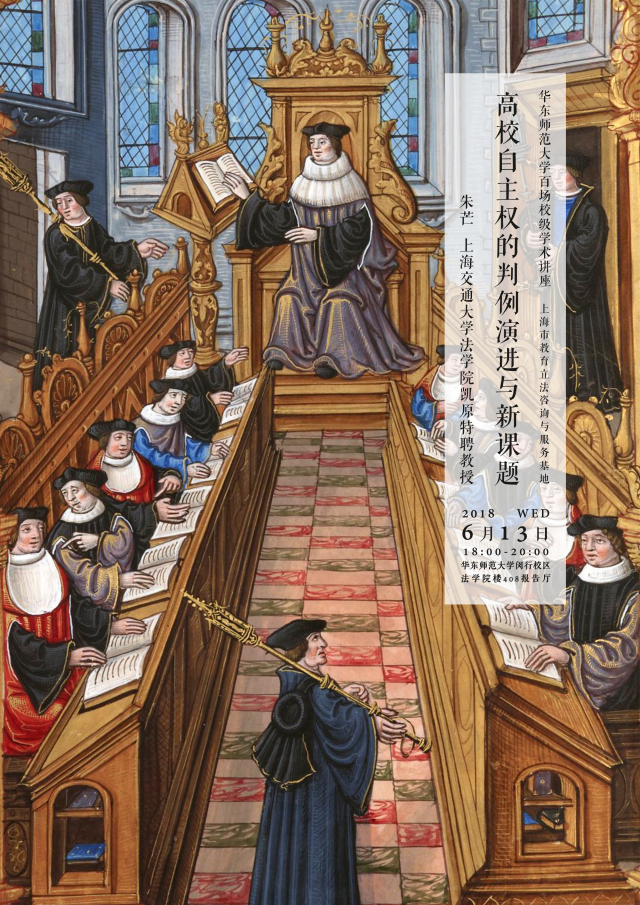 华东师范大学百场校级学术讲座 上海市教育立法咨询与服务基地
高校自主权的判例演进与新课题
朱芒 上海交通大学法学院凯原特聘教授
2018 WED
6月13日
18:00-20:00
华东师范大学闵行校区
法学院楼408报告厅